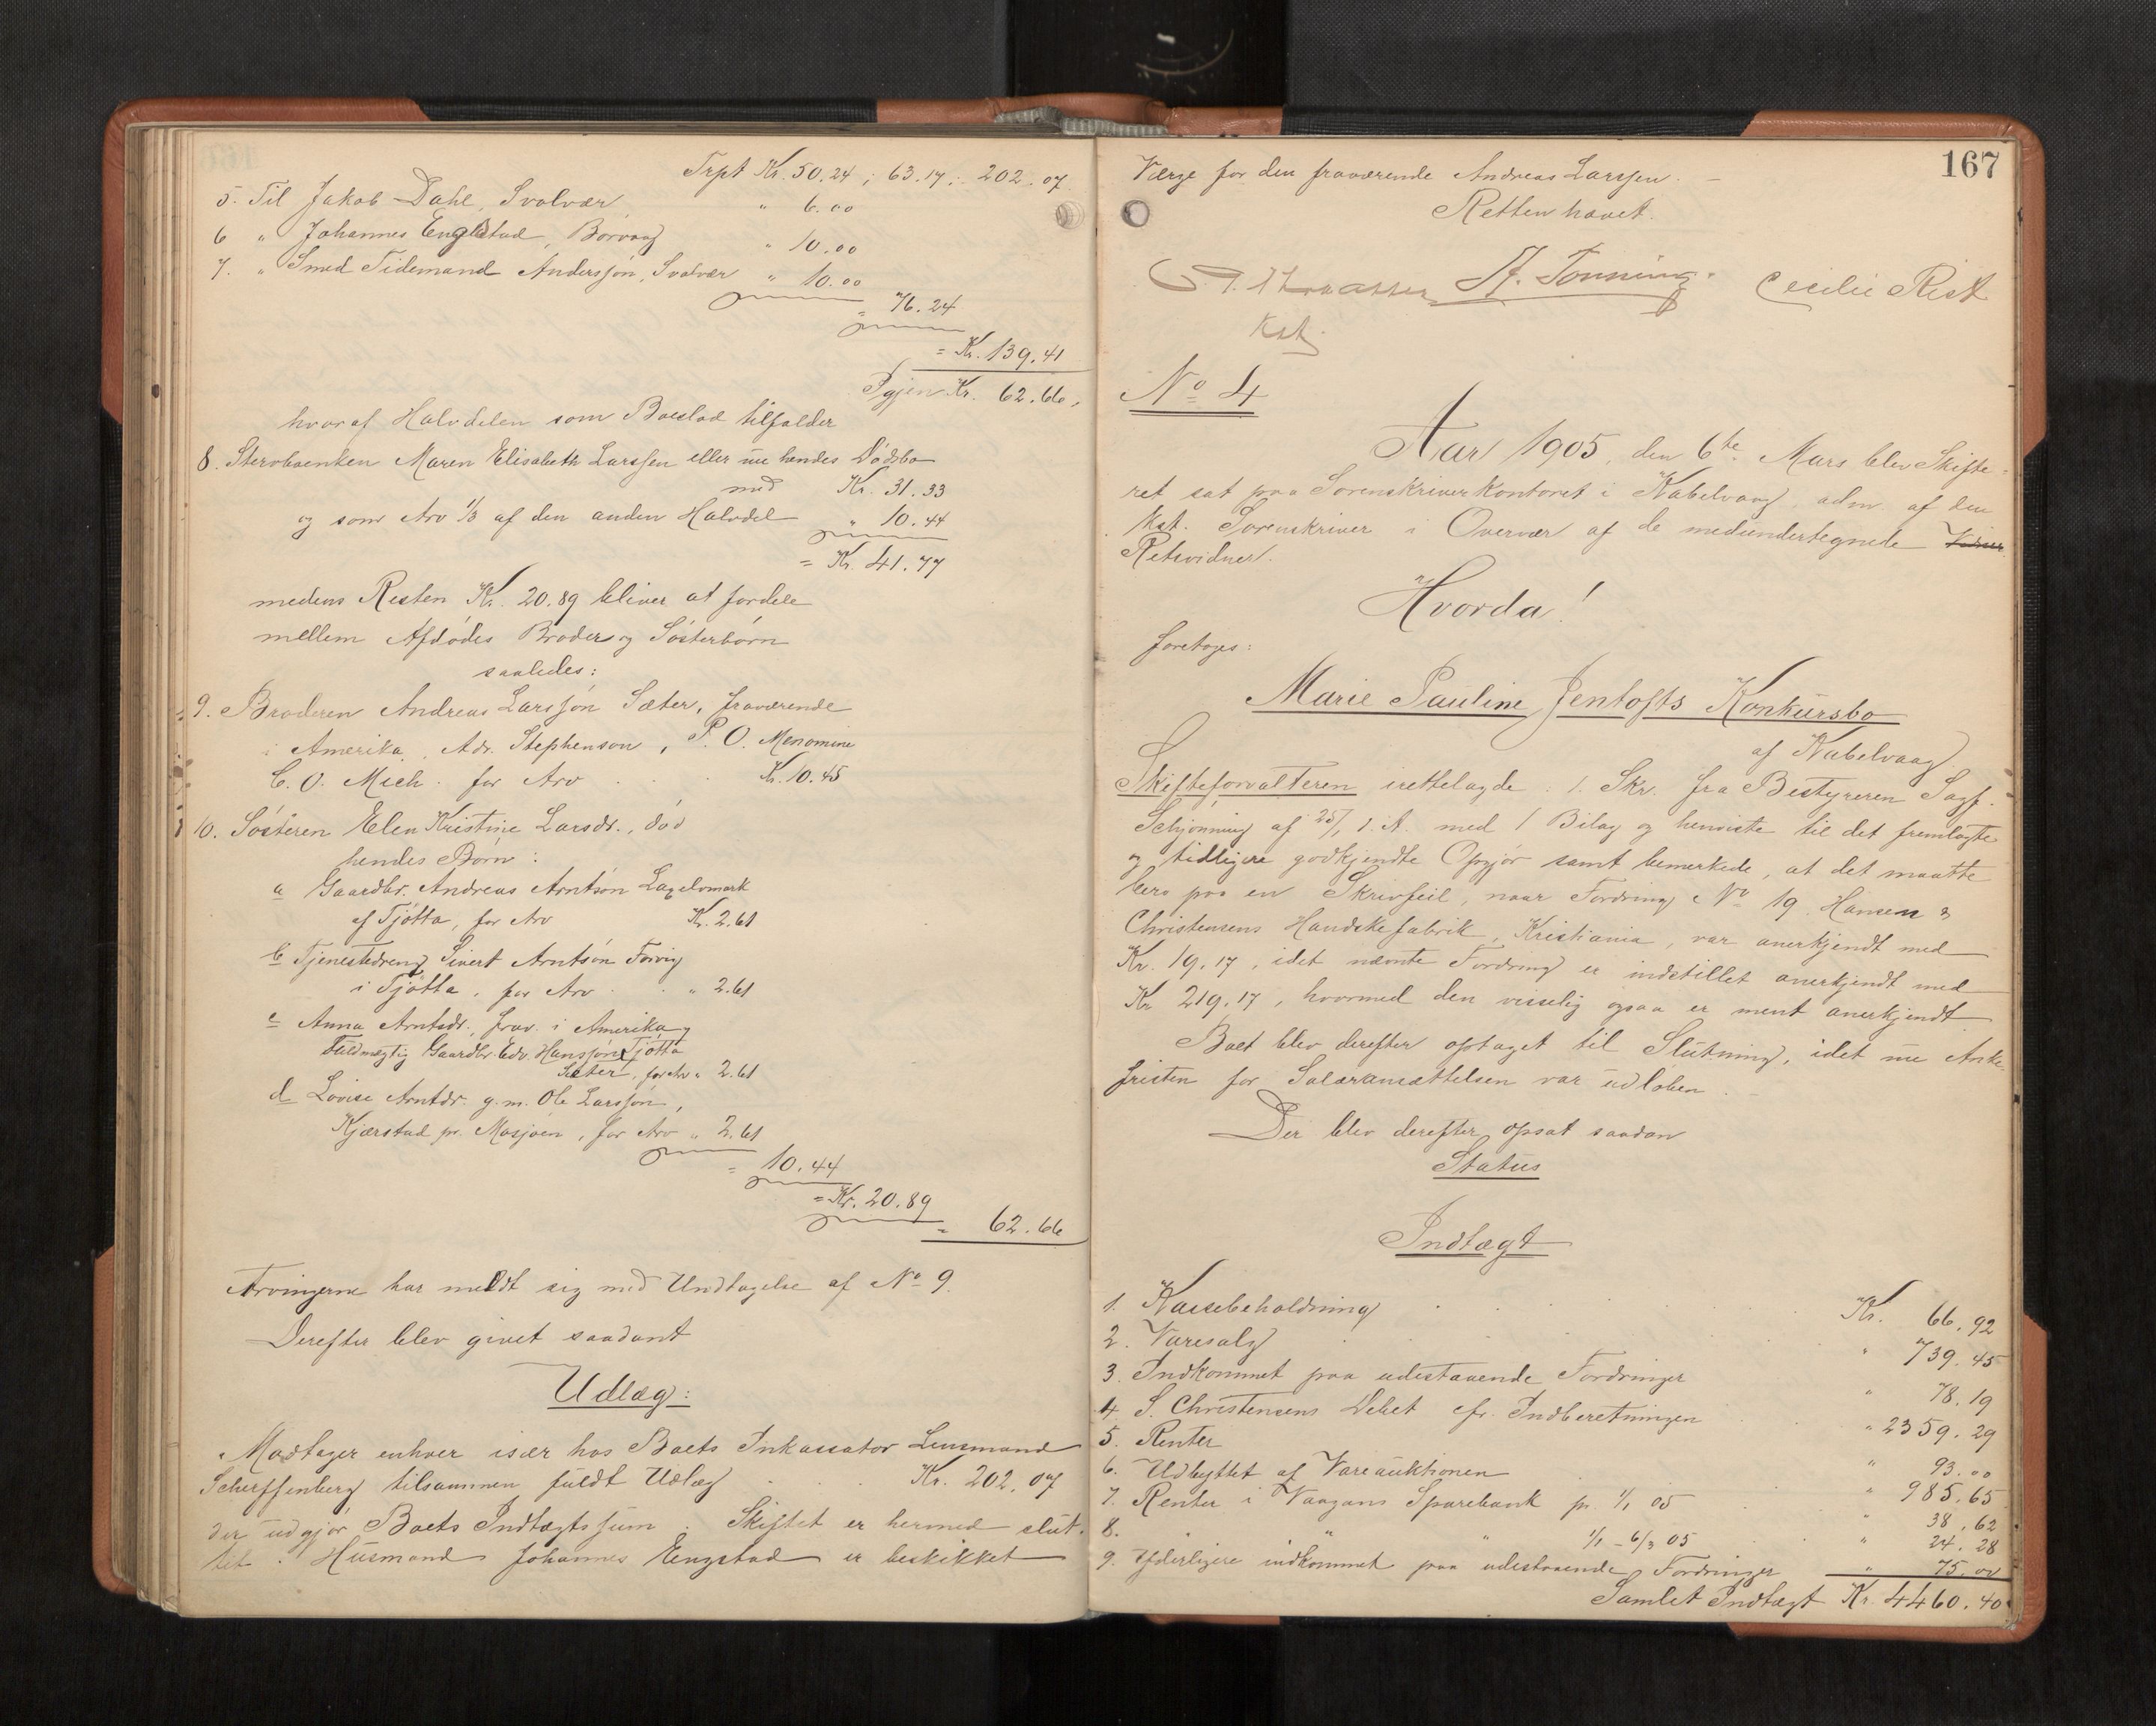 Trpt Kr. 50.24 ; 63.17 ; 202.07
5. Til Jakob Dahl, Svolvær " 6.00
6 " Johannes Engstad, Borvaag " 10.00
7. " Smed Tidemand Anderssøn, Svolvær " 10.00
= 76.24
= Kr. 139.41
Igjen Kr. 62.66,
hvoraf Halvdelen som Boeslod tilfalder
8. Stervboenken Maren Elisabeth Larssen eller nu hendes Dødsbo
med Kr. 31.33
og som Arv 1/3 af den anden Halvdel " 10.44
= Kr. 41.77
medens Resten Kr. 20.89 bliver at fordele
mellem Afdødes Broder og Søsterbørn
saaledes:
9. Broderen Andreas Larssøn Sæter, fraværende
i Amerika, Adr. Stephenson, P. O. Menomine
C. O. Mich. for Arv Kr. 10.45
10. Søsteren Elen Kristine Larsdr., død
hendes Børn:
a Gaardbr. Andreas Arntsøn
af Tjøtta, for Arv Kr. 2.61
b Tjenestedreng Sivert Arntsøn Forvig
i Tjøtta, for Arv " 2.61
c Anna Arntsdr., frav. i Amerika,
Fuldmægtig Gaardbr. Edv. Hanssøn Tjøtta
Sæter, for Arv " 2.61
d Lovise Arntdr. g. m. Ole Larssøn,
Kjærstad pr. Mosjøen, for Arv " 2.61
= 10.44
= Kr. 20.89
= 62.66
Arvingerne har meldt sig med Undtagelse af No 9.
Derefter blev givet saadant
Udlæg:
Modtager enhver især hos Boets Inkassator Lensmand
Scheffenberg tilsammen fuldt Udlæg Kr. 202.07
der udgjør Boets Indtægtssum. Skiftet er hermed slut-
tet. Husmand Johannes Engstad er beskikket
167
Værge for den fraværende Andreas Larssen. –
Retten hævet.
A. Tonning. Cecilie Rist
Kst.
No 4
Aar 1905, den 6te Mars blev Skifte-
ret sat paa Sorenskriverkontoret i Kabelvaag, adm. af den
kst. Sorenskriver i Overvær af de medundertegnede
Retsvidner.
Hvorda!
foretoges:
Marie Pauline Jentofts Konkursbo
af Kabelvaag.
Skifteforvalteren irettelagde 1. Skr. fra Bestyreren Sagf.
Schjønning af 25/1 d. A. med 1 Bilag og henviste til det fremlagte
og tidligere godkjendte Opgjør samt bemerkede, at det maatte
bero paa en Skrivfeil, naar Fordring No 19 Hansen &
Christensens Handskefabrik, Kristiania, var anerkjendt med
Kr. 19.17, idet nævnte Fordring er indstillet anerkjendt med
Kr. 219.17, hvormed den visselig ogsaa er ment anerkjendt.
Boet blev derefter optaget til Slutning, idet nu Anke-
fristen for Salæransættelsen var udløben.
Der blev derefter opsat saadan
Status
Indtægt
1. Kassebeholdning Kr. 66.92
2. Varesalg " 739.45
3. Indkommet paa udestaaende Fordringer " 78.19
4. S. Christensens Debet cfr. Indberetningen " 2359.29
5. Renter " 93.00
6. Udbyttet af Vareauktionen " 985.65
7. Renter i Vaagans Sparebank pr. 1/1 05 " 38.62
8. " " " 1/1 – 6/3 05 " 24.28
9. Yderligere indkommet paa udestaaende Fordringer " 75.00
Samlet Indtægt Kr. 4460.40